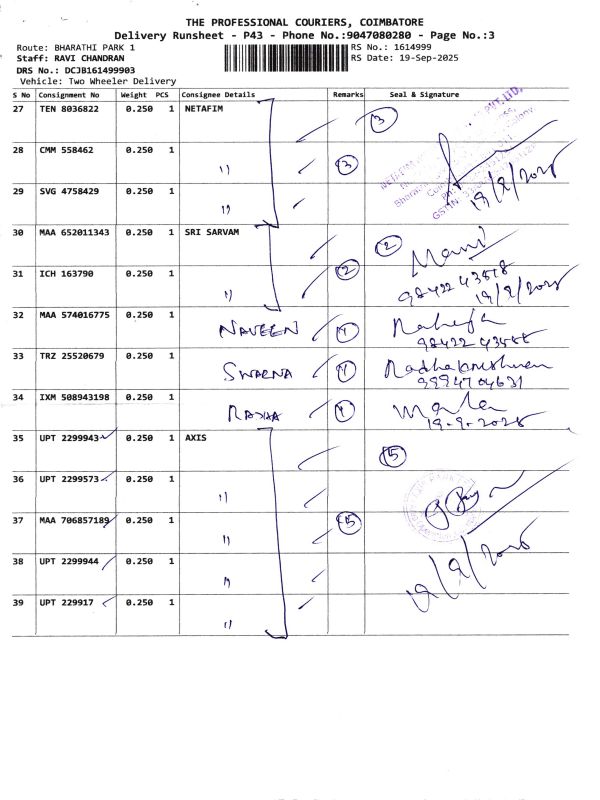 THE PROFESSIONAL COURIERS, COIMBATORE
Delivery Runsheet - P43 - Phone No.:9047080280 - Page No.:3
Route: BHARATHI PARK 1 RS No.: 1614999
Staff: RAVI CHANDRAN RS Date: 19-Sep-2025
DRS No.: DCJB161499903
Vehicle: Two Wheeler Delivery
S No Consignment No Weight PCS Consignee Details Remarks Seal & Signature
27 TEN 8036822 0.250 1 NETAFIM 3
28 CMM 558462 0.250 1 " 3
29 SVG 4758429 0.250 1 " 19/9/2025
30 MAA 652011343 0.250 1 SRI SARVAM 2 Mani
31 ICH 163790 0.250 1 " 2 19/9/2025
32 MAA 574016775 0.250 1 NAVEEN 1
33 TRZ 25520679 0.250 1 SWARNA 1 Radhakrishnan
9994704631
34 IXM 508943198 0.250 1 RADHA 1 Mala
19-9-2025
35 UPT 2299943 0.250 1 AXIS 5
36 UPT 2299573 0.250 1 "
37 MAA 706857189 0.250 1 " 5
38 UPT 2299944 0.250 1 " 19/9/2025
39 UPT 229917 0.250 1 "